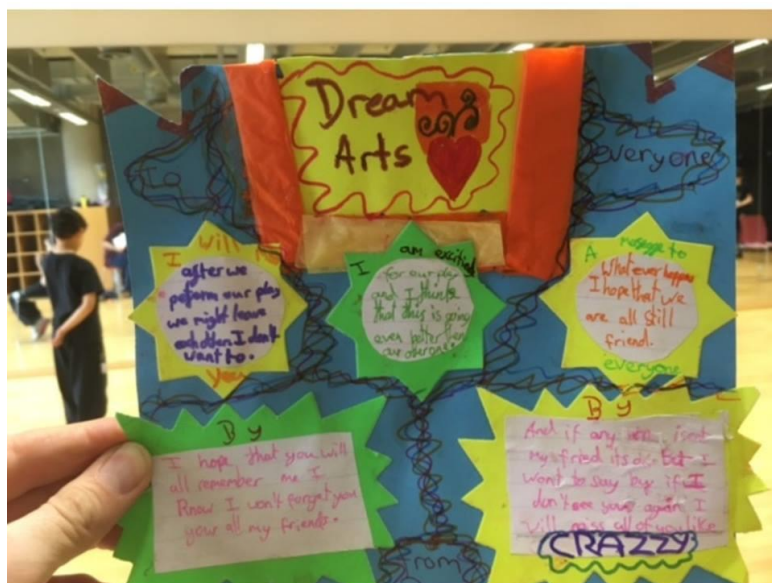 Dream
Arts
To
everyone
I will
after we
peform our play
we might leave
each other I don't
want to.
you
I am excited
for our play
and I think
that this is going
even better then
our other one
A message to
What ever happens
I hope that we
are all still
friend.
everyone
By
I hope that you will
all remember me I
Know I won't forget you
your all my friends.
By
And if any isent
my fried its ok but I
want to say by if I
don't see you again I
will miss all of you like
CRAZZY
From